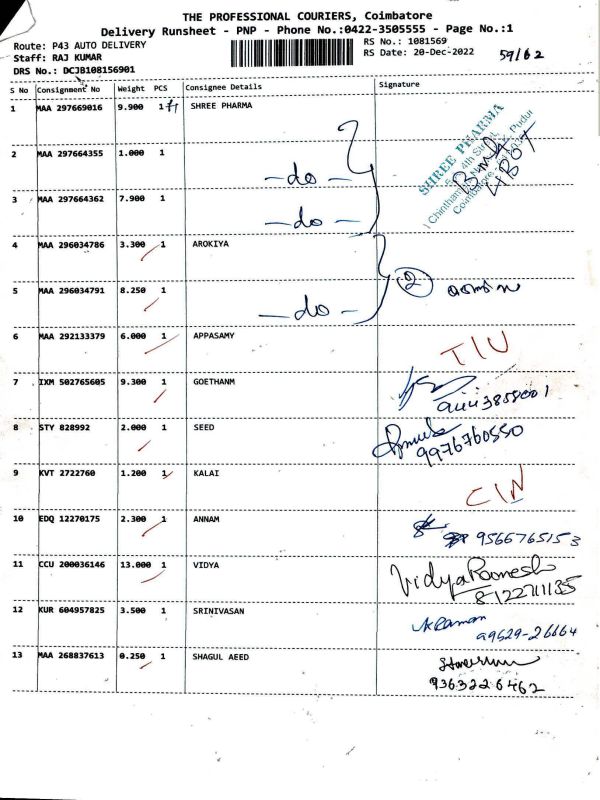 THE PROFESSIONAL COURIERS, Coimbatore
Delivery Runsheet - PNP - Phone No.:0422-3505555 - Page No.:1
Route: P43 AUTO DELIVERY
RS No.: 1081569
Staff: RAJ KUMAR
RS Date: 20-Dec-2022
59/62
DRS No.: DCJB108156901
S No Consignment No Weight PCS Consignee Details Signature
1 MAA 297669016 9.900 1 SHREE PHARMA
SHREE PHARMA
2 MAA 297664355 1.000 1
-do-
4 BOX
3 MAA 297664362 7.900 1
-do-
4 MAA 296034786 3.300 1 AROKIYA
2
5 MAA 296034791 8.250 1
-do-
6 MAA 292133379 6.000 1 APPASAMY
TIU
7 IXM 502765605 9.300 1 GOETHANM
8 STY 828992 2.000 1 SEED
9976760550
9 KVT 2722760 1.200 1 KALAI
CIN
10 EDQ 12270175 2.300 1 ANNAM
9566765153
11 CCU 200036146 13.000 1 VIDYA
Vidya Ramesh
8122711135
12 KUR 604957825 3.500 1 SRINIVASAN
a9629-26664
13 MAA 268837613 0.250 1 SHAGUL AEED
9363226462